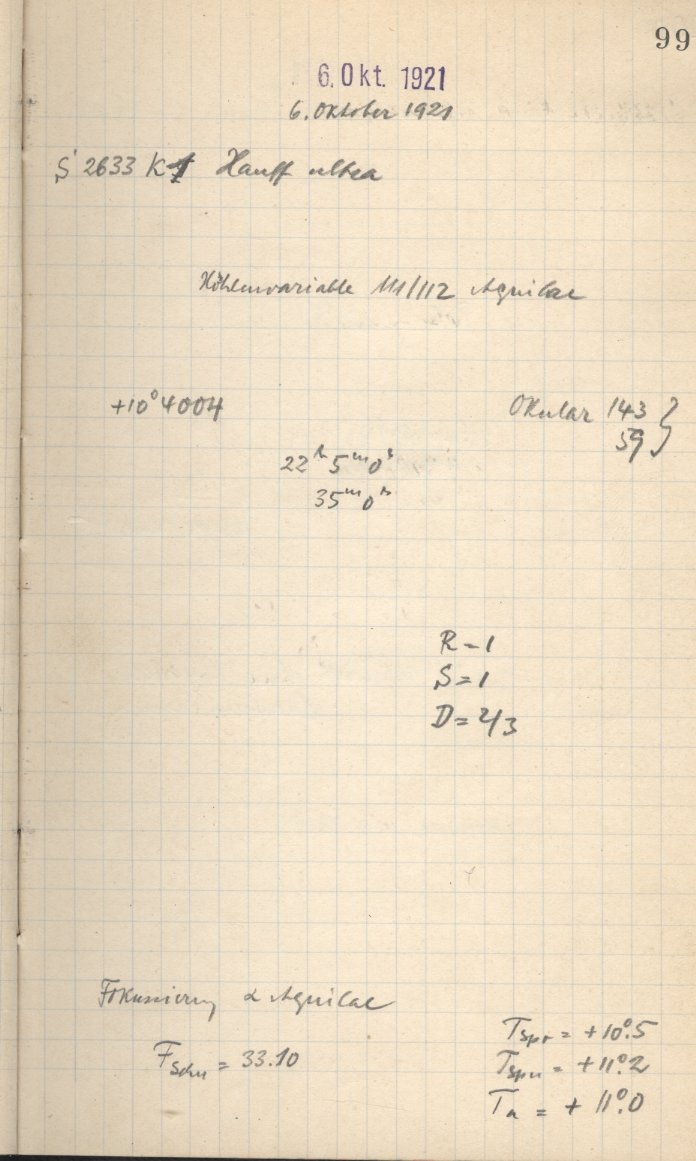 99
6. Okt. 1921
6. Oktober 1921
S 2633 K1 Hauff ultra
111/112 Aquilae
+10° 4004
Okular 143
59
22h 5m 0s
35m 0s
R=1
S=1
D=2/3
Fokussierung α Aquilae
Tspo = +10°.5
Fschu = 33.10
Tspu = +11°.2
Ta = +11°.0